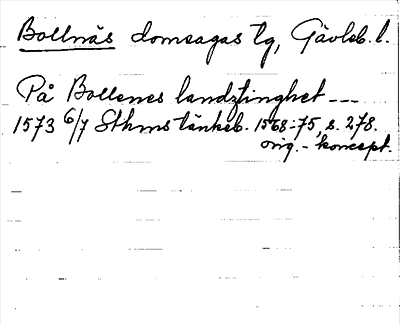 Bollnäs domsagas tg, Gävleb. l.
På Bollenes landztinghet ---
1573 6/7 Sthms tänkeb. 1568-75, s. 278.
orig. - koncept.